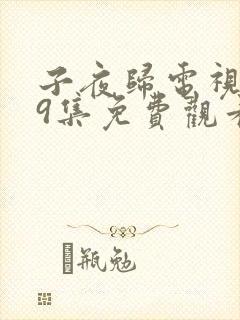 子夜歸電視
9集免費觀看
瓶勉